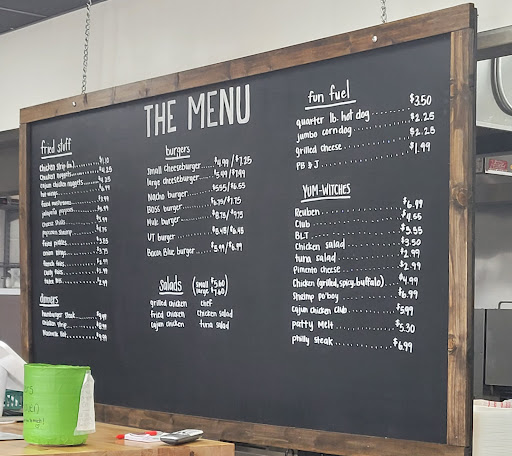 THE MENU
fried stuff
chicken strip (1ea) $1.10
chicken nuggets $4.25
cajun chicken nuggets $4.25
hot wings
fried mushrooms
jalapeño poppers
cheese sticks
popcorn shrimp
fried pickles
onion rings
french fries
curly fries
tater tots
dinners
hamburger steak
chicken strip
burgers
small cheeseburger $4.99 / $7.25
large cheeseburger $5.49 / $7.99
Nacho burger $5.55 / $6.55
BOSS burger $6.75 / $7.75
Mule burger
VT burger
Bacon Blue burger $5.99 / $6.99
salads (small $5.60
large $7.60)
grilled chicken chef
fried chicken chicken salad
cajun chicken tuna salad
fun fuel
quarter lb. hot dog $3.50
jumbo corndog $2.25
grilled cheese $2.25
PB & J $1.99
YUM-WITCHES
Reuben $6.99
Club
BLT $3.55
Chicken salad $3.50
tuna salad $2.99
Pimento cheese $2.99
Chicken (grilled, spicy, buffalo) $4.99
Shrimp Po'boy $6.99
cajun chicken Club $5.99
patty melt $5.30
philly steak $6.99